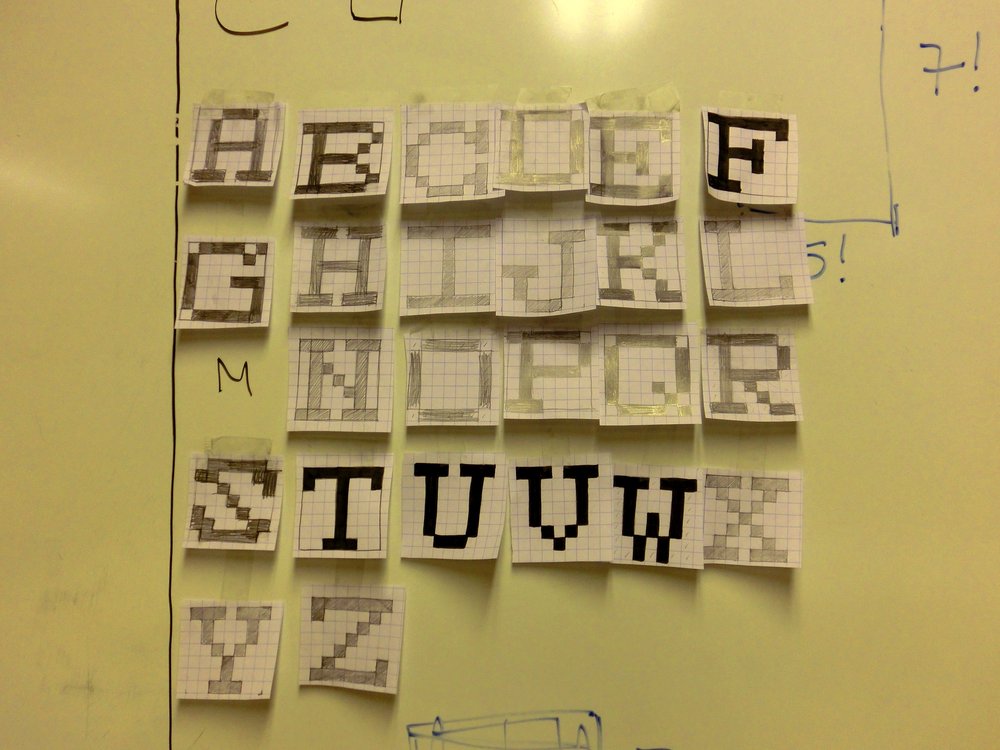 7!
A B C D E F
5!
G H I J K L
M N O P Q R
S T U V W X
Y Z